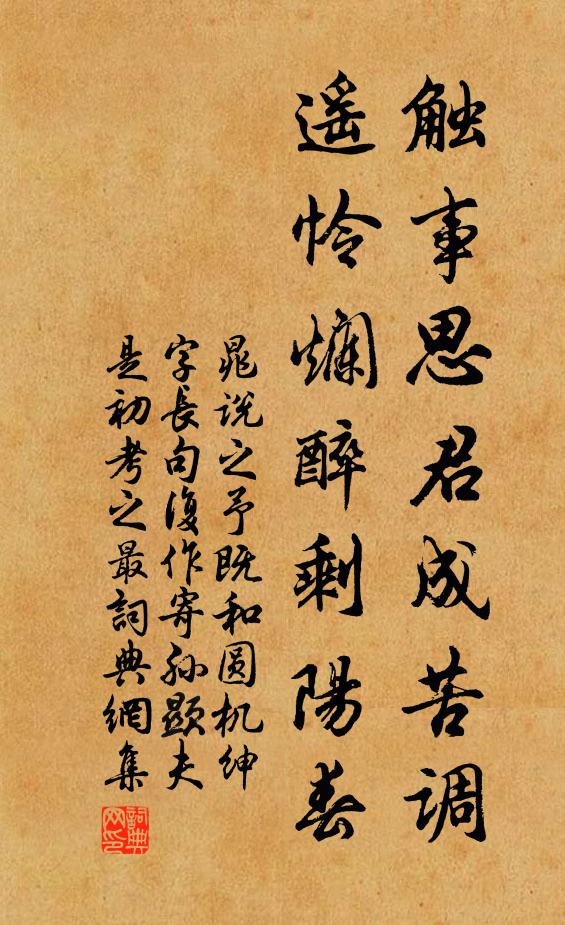 触事思君成苦调
遥怜爛醉剩陽春
晁说之予既和圆机绅
字長句復作寄孙顕夫
是初考之最詞典網集
詞典
网印